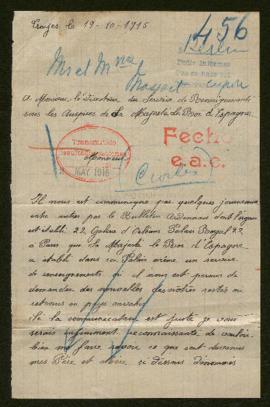 Limoges le 19-10-1915
456
Mr et Mme
A Monsieur le Directeur du Service de Renseignements
sous les Auspices de Sa Majesté le Roi d'Espagne
Monsieur
MAY 1916
Fecho
e.a.c.
Il nous est communiqué par quelques journaux
entre autres par le Bulletin Ardennais dont l'organe
est établi 22, Galerie d'Orléans Palais Royal 22
à Paris que Sa Majesté le Roi d'Espagne
a établi dans son Palais même un service
de renseignements où il nous est permis de
demander des nouvelles des nôtres restés ou
retenus en pays envahi
Si la communication est juste je vous
serais infiniment reconnaissante de vouloir
bien me faire savoir ce que sont devenus
mes Père et Mère, ci dessous dénommés